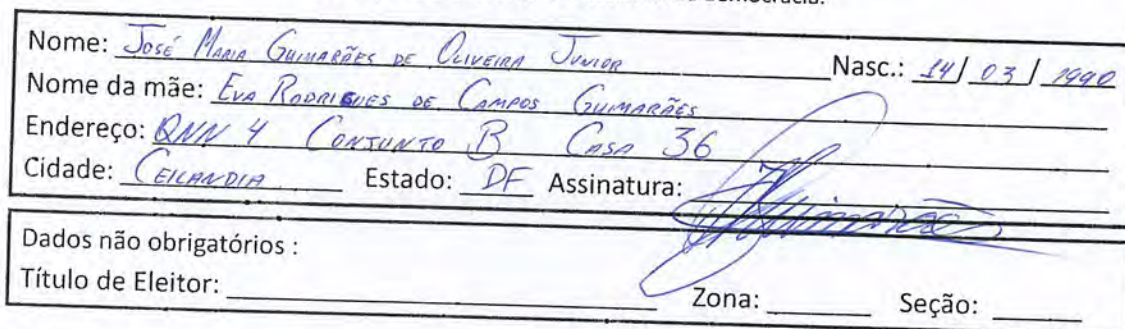 democracia.
Nome: José Maria Guimarães de Oliveira Junior Nasc.: 14/03/1990
Nome da mãe: Eva Rodrigues de Campos Guimarães
Endereço: QNN 4 Conjunto B Casa 36
Cidade: Ceilandia Estado: DF Assinatura: Guimarães
Dados não obrigatórios :
Título de Eleitor: Zona: Seção: